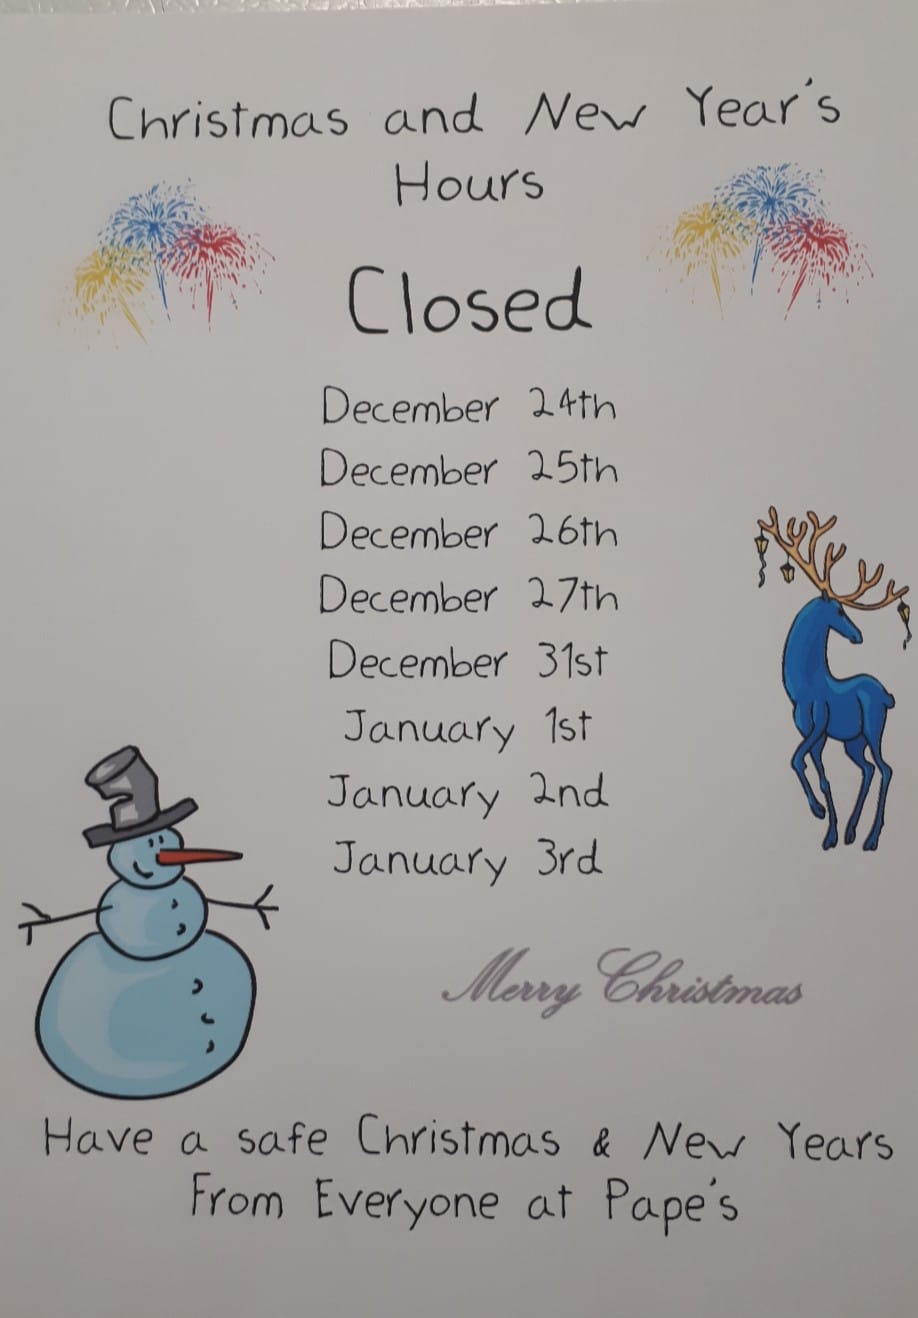 Christmas and New Year's
Hours
Closed
December 24th
December 25th
December 26th
December 27th
December 31st
January 1st
January 2nd
January 3rd
Merry Christmas
Have a safe Christmas & New Years
From Everyone at Pape's